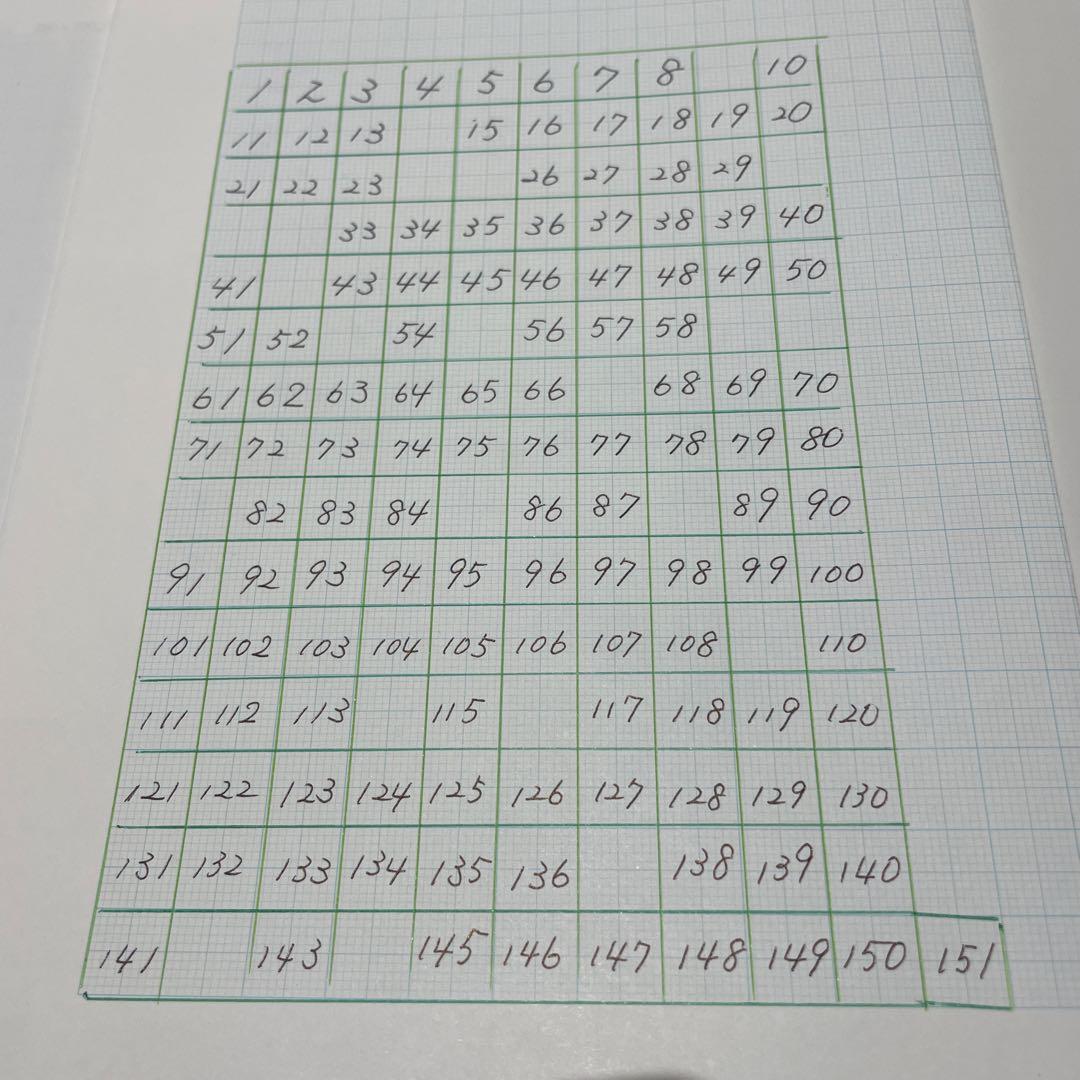 1 2 3 4 5 6 7 8 10
11 12 13 15 16 17 18 19 20
21 22 23 26 27 28 29
33 34 35 36 37 38 39 40
41 43 44 45 46 47 48 49 50
51 52 54 56 57 58
61 62 63 64 65 66 68 69 70
71 72 73 74 75 76 77 78 79 80
82 83 84 86 87 89 90
91 92 93 94 95 96 97 98 99 100
101 102 103 104 105 106 107 108 110
111 112 113 115 117 118 119 120
121 122 123 124 125 126 127 128 129 130
131 132 133 134 135 136 138 139 140
141 143 145 146 147 148 149 150 151